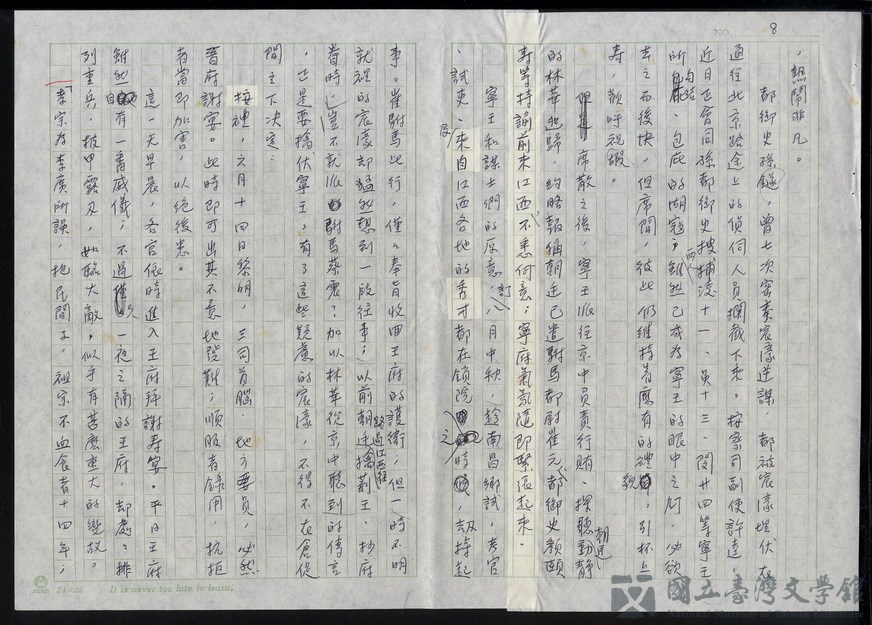 NO. 8
,熱鬧非凡。
都御史孫鐩,曾七次密奏宸濠逆謀。都被宸濠埋伏在
通往北京路途上的偵伺人員攔截下來。按察司副使許逵,
近日正會同孫都御史搜捕凌十一、吳十三、閔廿四等寧王
所勾結、包庇的湖寇;雖然已成為寧王的眼中之釘,必欲
去之而後快,但席間,彼此仍維持着應有的禮貌,引杯上
壽,歡呼祝嘏。
席散之後,寧王派往京中負責行賄、探聽朝廷動靜
的林華趕歸,約略報稱朝廷已遣駙馬都尉崔元、都御史顏頤
壽等持諭前來江西,不悉何意;寧府氣氛隨即緊張起來。
寧王和謀士們的原意,訂八月中秋,趁南昌鄉試,考官
、試吏、及來自江西各地的秀才都在鎖院之時,刧持起
事。崔駙馬此行,僅僅奉旨收回王府的護衛;但一時不明
就裡的宸濠却猛然想到一段往事;以前朝廷擒荊王、抄府
眷時,豈不就派駙馬蔡震?加以林華從京中聽到的傳言
,正是要擒伏寧王,有了這些疑慮的宸濠,不得不在倉促
間之下決定:
按禮,六月十四日黎明,三司首腦、地方要員,必然
晉府謝宴。此時即可出其不意地發難;順服者錄用,抗拒
者當即加害,以絕後患。
這一天早晨,各官依時進入王府拜謝壽宴。平日王府
雖然自有一番威儀;不過只一夜之隔的王府,却處處排
列重兵,披甲露刃,如臨大敵,似乎有甚麼重大的變故。
「孝宗為李廣所誤,抱民間子,祖宗不血食者十四年;
24×25 It is never too late to learn.
國立臺灣文學館